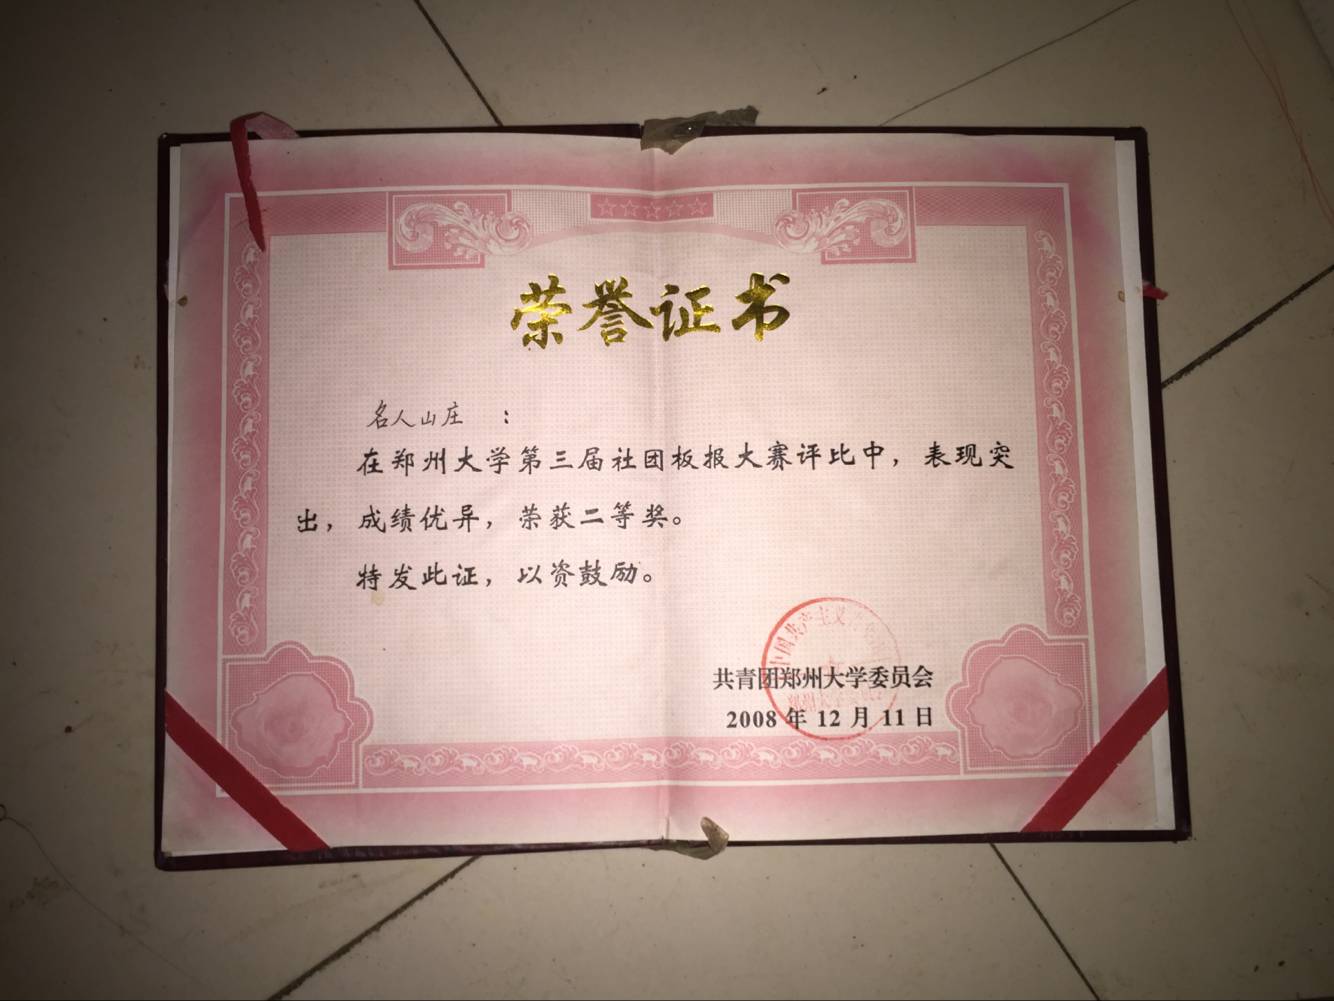 荣誉证书
名人山庄 ：
在郑州大学第三届社团板报大赛评比中，表现突
出，成绩优异，荣获二等奖。
特发此证，以资鼓励。
中国共产主义
共青团郑州大学委员会
2008 年 12 月 11 日